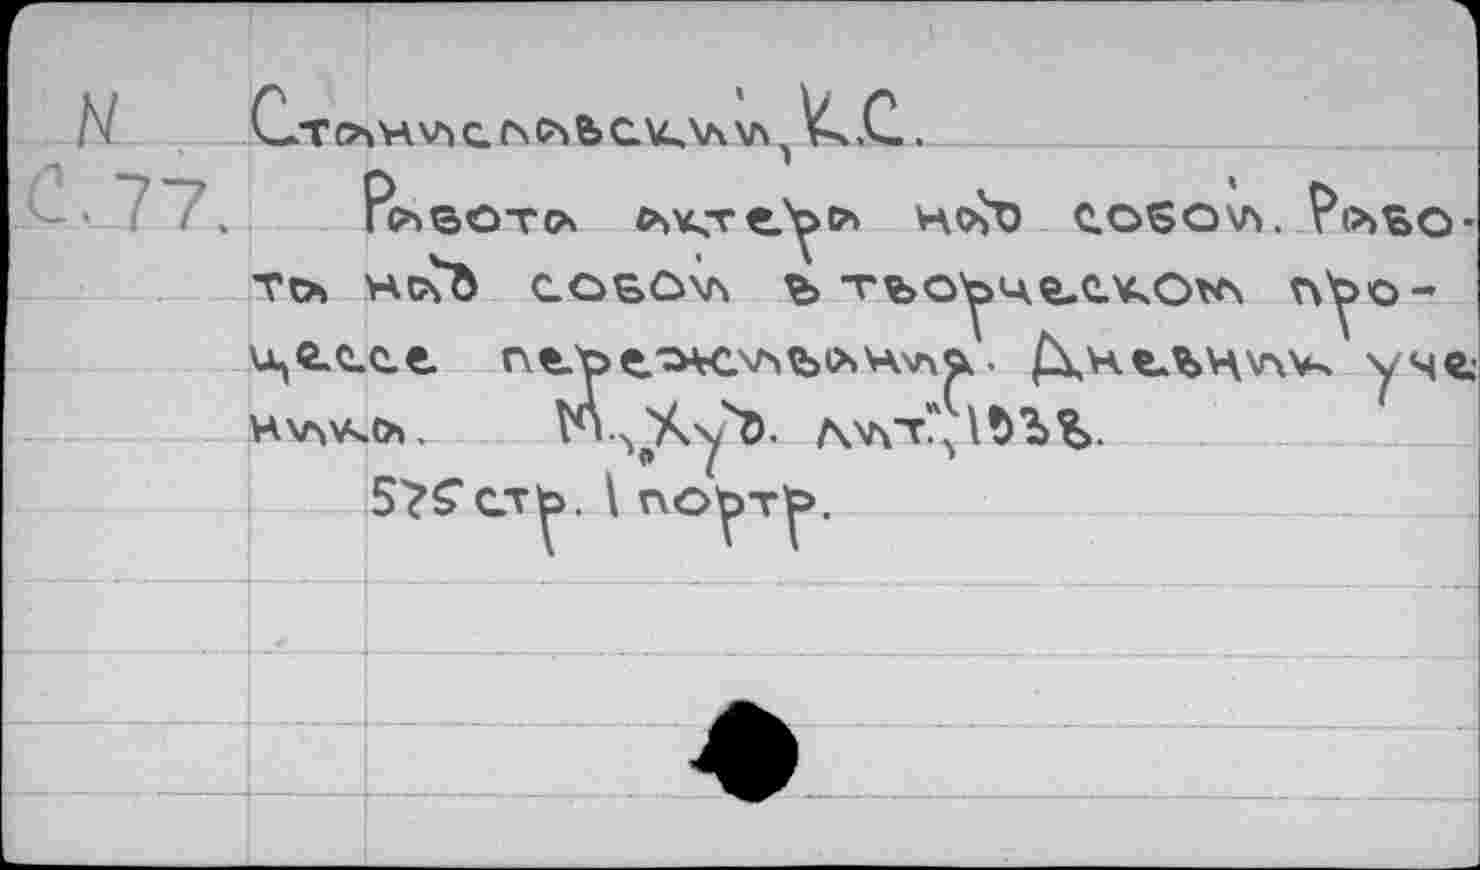 N Станиславский, К.С.
С.77. Работа актера над собой. Рабо-
та над собой в творческом про-
цессе переживания. Дневник уче-
ника. М., „Худ. лит.", 1938.
575 стр. 1 портр.